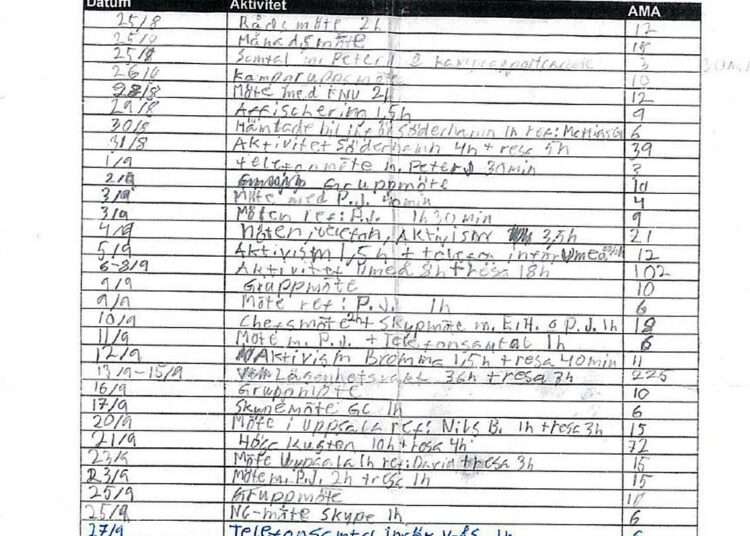 Datum Aktivitet AMA
25/8 Rådsmöte 2h 12
25/8 Månadsmöte 15
25/8 Samtal m. Peter J 3 30min
26/8 kampgruppmöte 10
28/8 Möte med FNU 2h 12
29/8 Affischering 1,5h 9
30/8 Hämtade bil inför Söderhamn 1h ref: Mattias G 6
31/8 Aktivitet Söderhamn 4h + resa 5h 39
1/9 telefonmöte m. Peter J 30min 3
2/9 Gruppmöte 10
3/9 Möte med P.J. 40min 4
3/9 Möten ref: P.J. 1h 30 min 9
4/9 Möten, telefon, Aktivism 3,5h 21
5/9 Aktivism 1,5h + telefon inför Umeå 12
6-8/9 Aktivitet Umeå 8h + resa 18h 102
9/9 Gruppmöte 10
9/9 Möte ref: P.J. 1h 6
10/9 Chefsmöte 2h + Skypmöte m. E.H. o P.J. 1h 18
11/9 Möte m. P.J. + Telefonsamtal 1h 6
12/9 Aktivism Bromma 1,5h + resa 40min 11
13/9-15/9 Lägenhetsvakt 36h + resa 3h 225
16/9 Gruppmöte 10
17/9 Skypemöte GC 1h 6
20/9 Möte i Uppsala ref: Nils B. 1h + resa 3h 15
21/9 Höga Kusten 10h + resa 4h 72
23/9 Möte Uppsala 1h ref: David + resa 3h 15
23/9 Möte m. P.J. 2h + resa 1h 15
25/9 Gruppmöte 10
25/9 NG-möte skype 1h 6
27/9 Telefonsamtal inför 1h 6